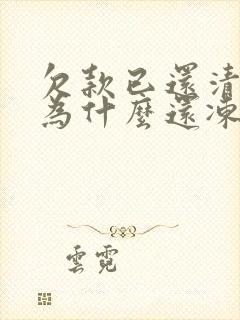 欠款已還清
為什麼還凍
雲霓